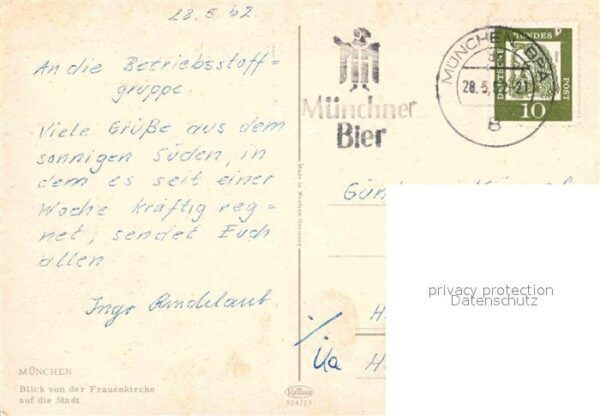 28.5.62
An die Betriebsstoff=
gruppe.
Viele Grüße aus dem
sonnigen Süden, in
dem es seit einer
Woche kräftig reg=
net, sendet Euch
allen
Ingo
MÜNCHEN
Blick von der Frauenkirche
auf die Stadt
Made in Western Germany
Krüger
924/13
Münchner
Bier
MÜNCHEN BPA
28.5.62-21
8
DEUTSCHE BUNDESPOST
10
privacy protection
Datenschutz